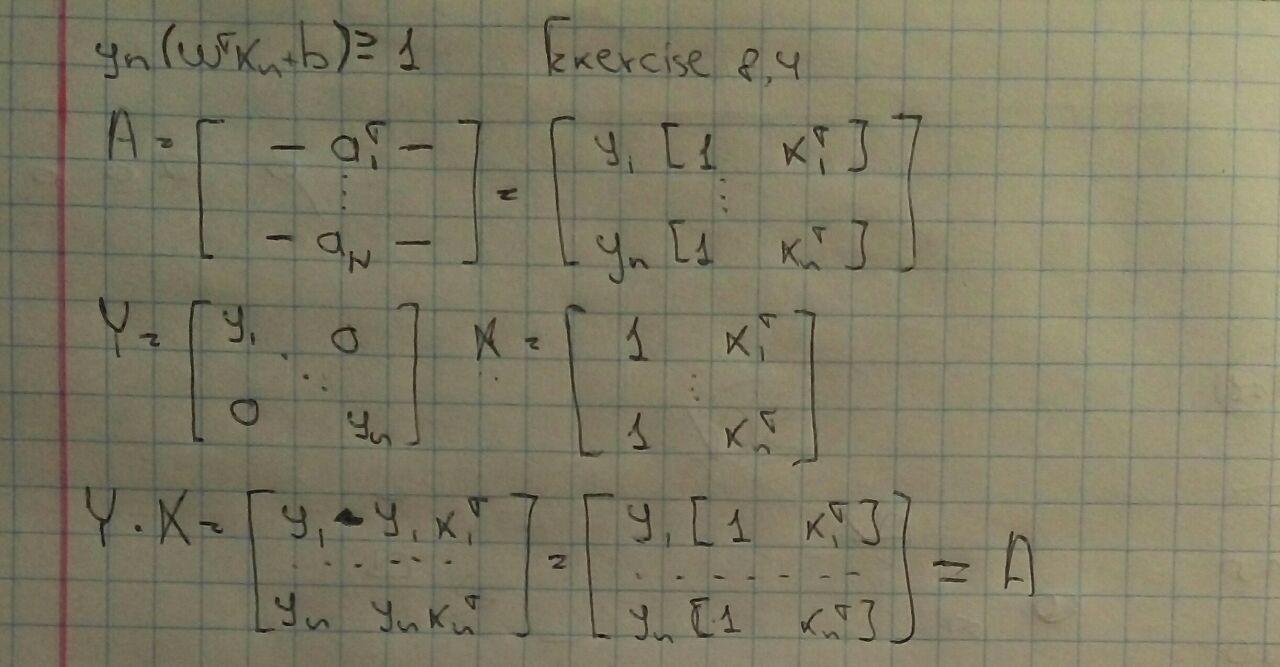 yₙ(wᵀxₙ+b) ≥ 1 Exercise 8,4
A = [ – a₁ᵀ – ⋮ – a_N – ] = [ y₁ [1 x₁ᵀ] ⋮ yₙ [1 xₙᵀ] ]
Y = [ y₁ 0 ⋱ 0 yₙ ] X = [ 1 x₁ᵀ ⋮ 1 xₙᵀ ]
Y · X = [ y₁ y₁x₁ᵀ ...... yₙ yₙxₙᵀ ] = [ y₁ [1 x₁ᵀ] ....... yₙ [1 xₙᵀ] ] = A